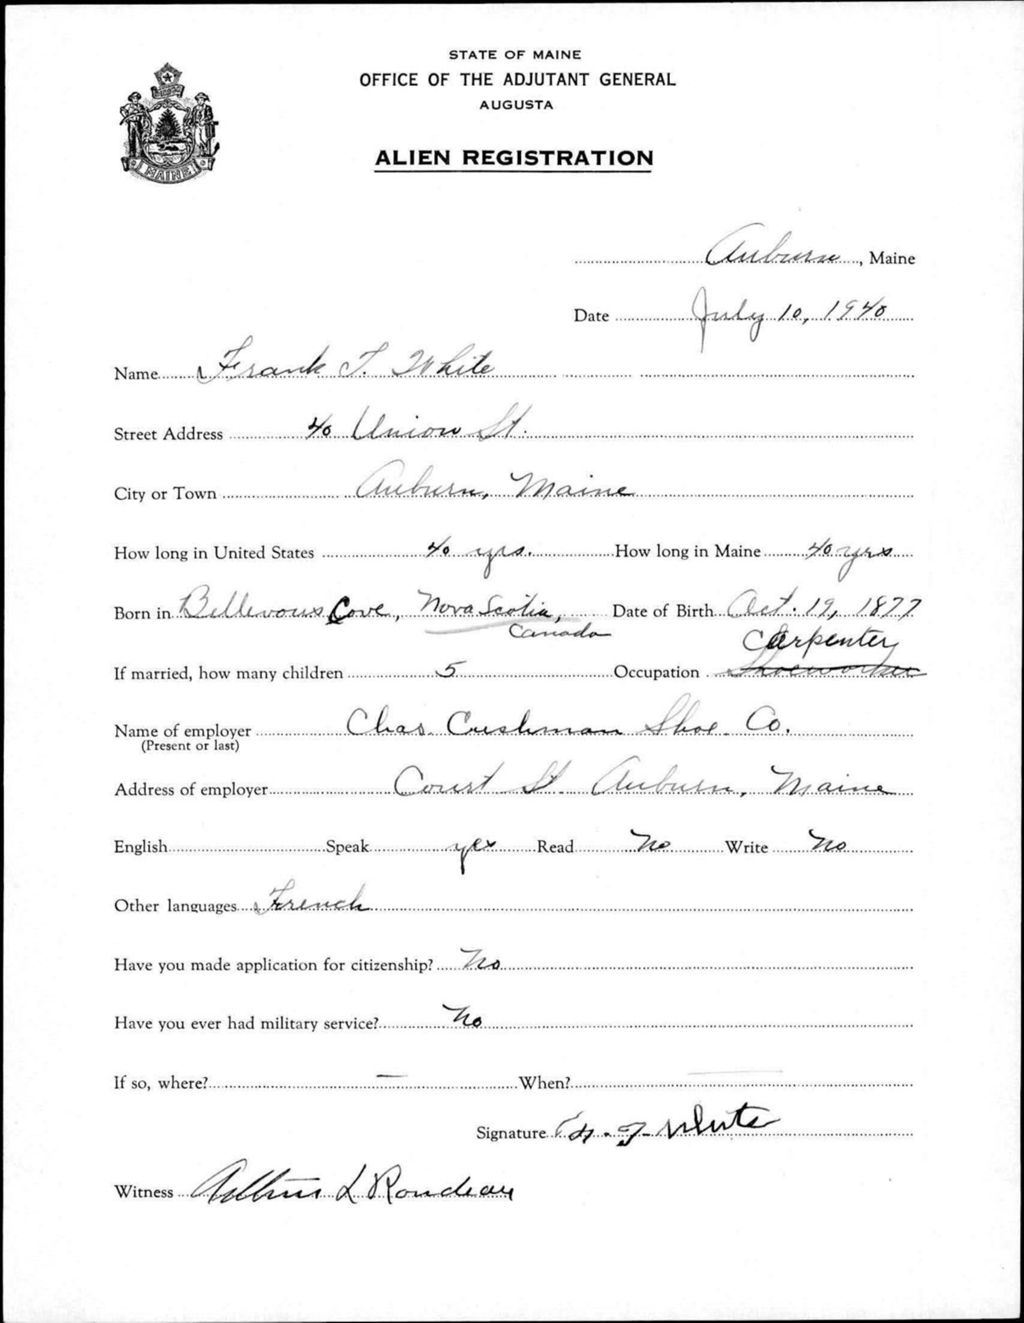 STATE OF MAINE
OFFICE OF THE ADJUTANT GENERAL
AUGUSTA
ALIEN REGISTRATION
MAINE
Auburn, Maine
Date July 10, 1940
Name Frank T. White
Street Address 40 Union St.
City or Town Auburn, Maine
How long in United States 40 yrs. How long in Maine 40 yrs
Born in Bellevous Cove, Nova Scotia, Date of Birth Oct. 19, 1877
Canada Carpenter
If married, how many children 5 Occupation Shoeworker
Name of employer Chas. Cushman Shoe Co.
(Present or last)
Address of employer Court St. Auburn, Maine
English Speak yes Read No Write No
Other languages French
Have you made application for citizenship? No
Have you ever had military service? No
If so, where? — When? —
Signature T. White
Witness L Rondeau